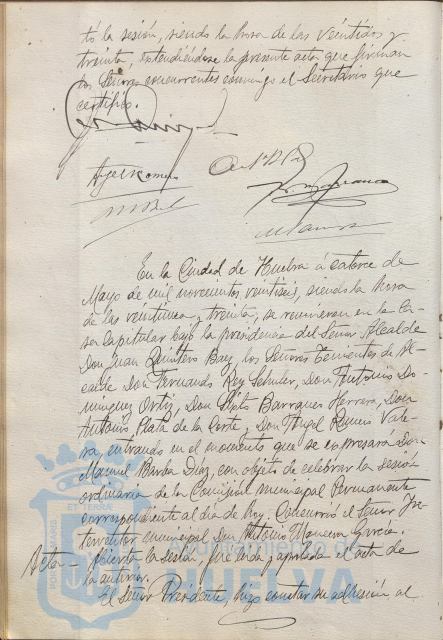 tó la sesión, siendo la hora de las veintidos y
treinta, extendiéndose la presente acta que firman
los Señores concurrentes conmigo el Secretario que
certifico.
En la Ciudad de Huelva á catorce de
Mayo de mil novecientos veintiseis, siendo la hora
de las veintiuna y treinta, se reunieron en la Ca-
sa Capitular bajo la presidencia del Señor Alcalde
Don Juan Quintero Baez, los Señores Tenientes de Al-
calde Don Fernando Rey Schuler, Don Antonio Do-
minguez Ortiz, Don Barragues Herrera, Don
Antonio Plata de la Corte, Don Angel Romero Vale-
ra, entrando en el momento que se expresará Don
Manuel Barba Diaz, con objeto de celebrar la sesión
ordinaria de la Comision municipal Permanente
correspondiente al dia de hoy. Concurrió el Señor In-
terventor municipal Don Antonio García.
Acta — Abierta la sesión, fué leida y aprobada el acta de
la anterior.
El Señor Presidente, hizo constar su adhesión al
AYUNTAMIENTO DE
HUELVA
PORTUS MARIS
ET TERRAE